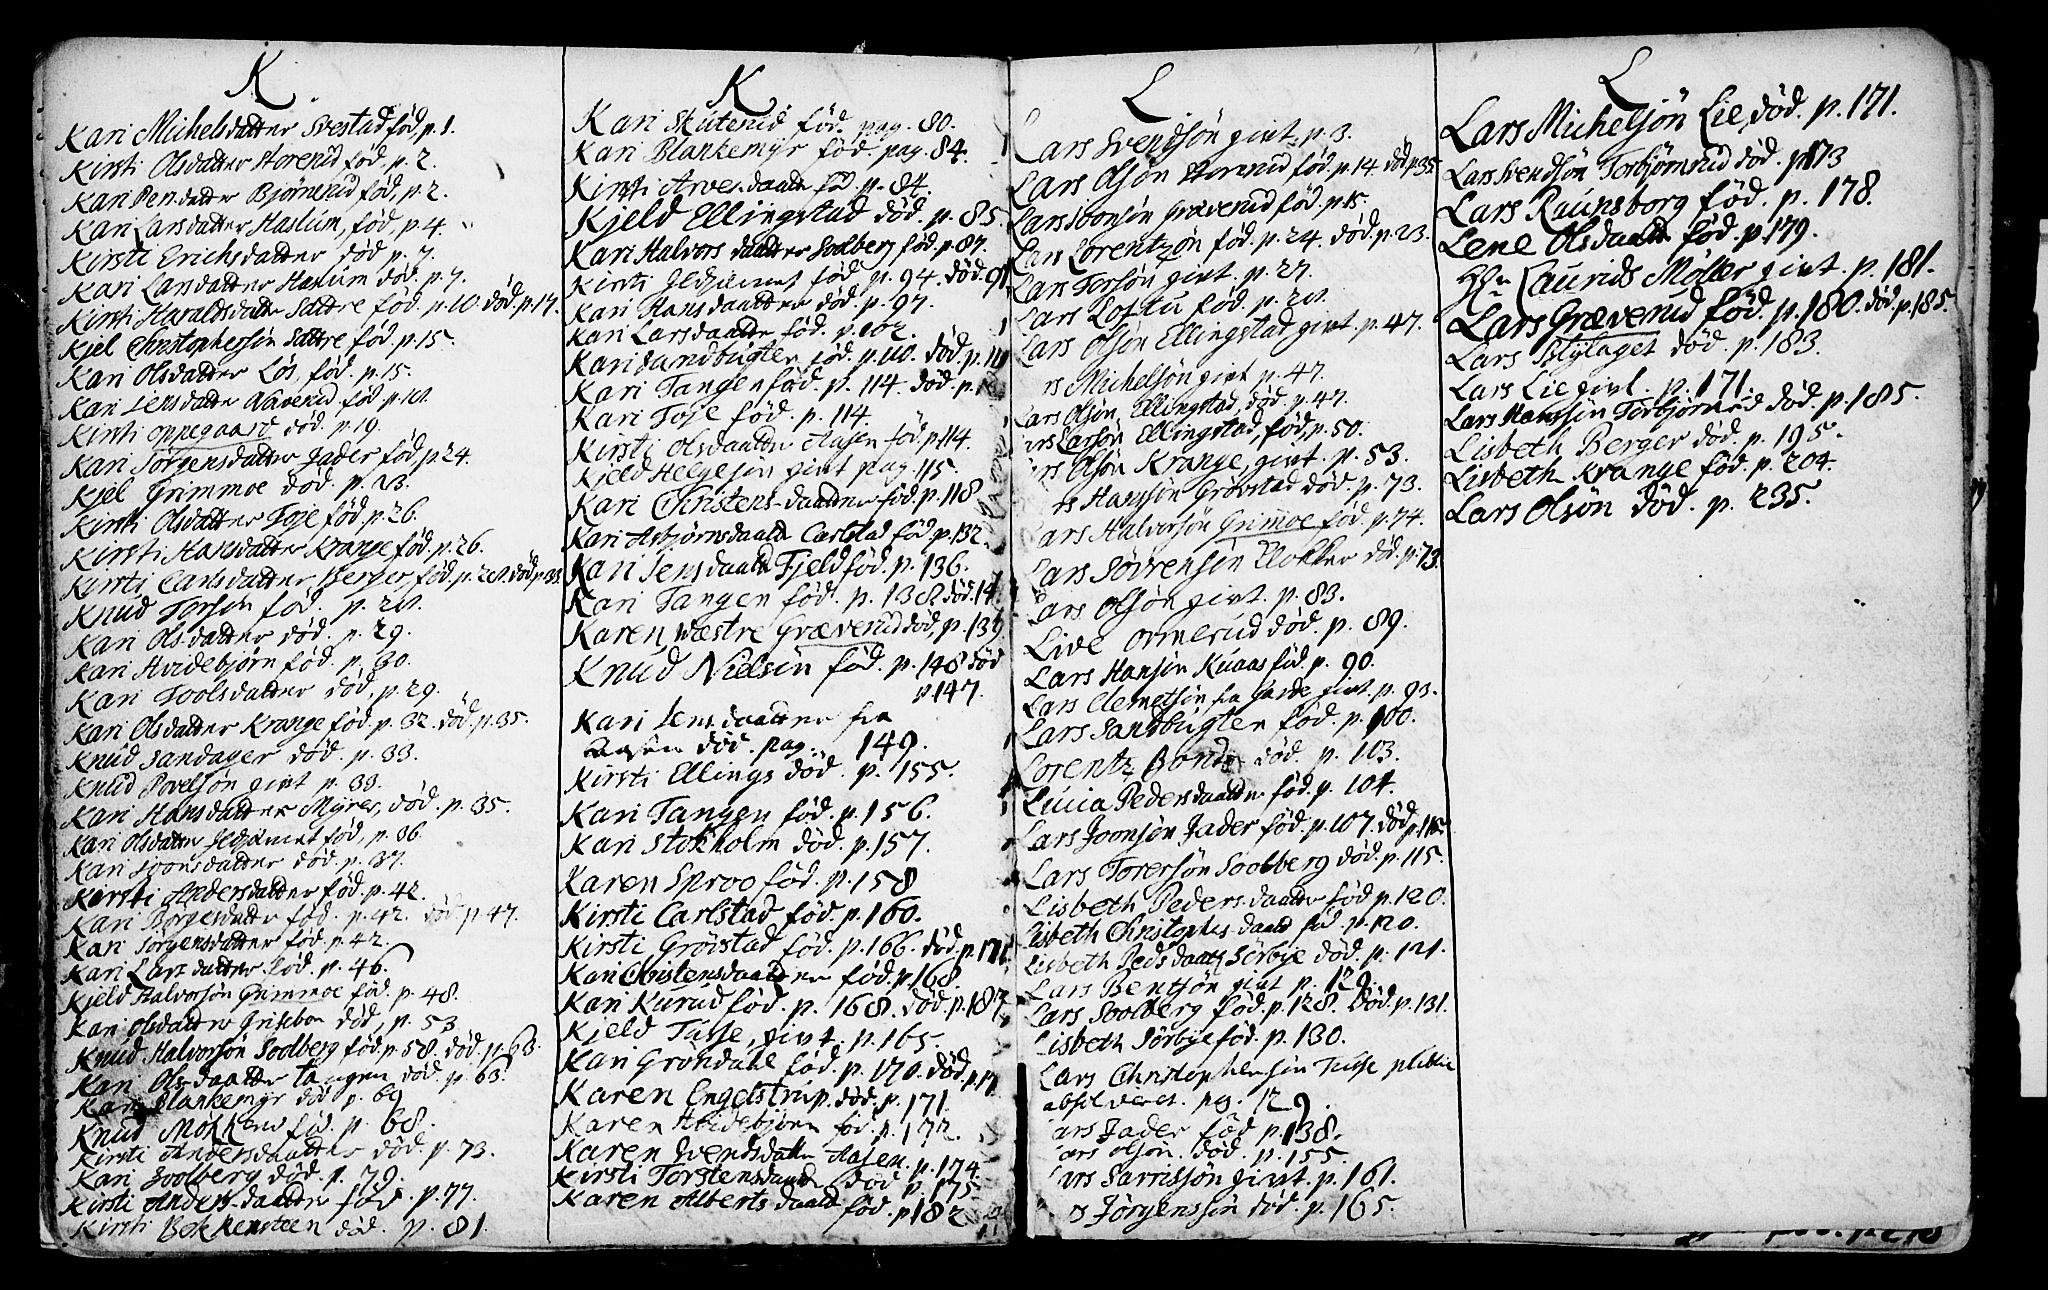 K
Kari Michelsdatter Svestad fød, p. 1.
Kirsti Olsdatter Horerud fød. p. 2.
Kari Pensdatter Bjørnerud fød, p. 2.
Kari Larsdatter Haslum, fød, p. 4.
Kirsti Erichsdatter død p. 7.
Kari Larsdatter Haslum død. p. 7.
Kirsti Haraldsdatter Sættre fød. p. 10. død. p. 17.
Kjel Christophersøn Sættre fød p. 15.
Kari Olsdatter Løs, fød. p. 15.
Kari Jensdatter fød p.
Kirsti Oppegaard død. p. 19.
Kari Jørgensdatter Jader fød, p. 24.
Kjel Grimmoe død. p. 23.
Kirsti Olsdatter Toje fød p. 26.
Kirsti Hansdatter Krange fød. p. 26.
Kirsti Carlsdatter Berger, fød. p. 28. død, p. 33.
Knud Torsøn fød. p. 28.
Kari Olsdatter død. p. 29.
Kari Hvidebjørn fød. p. 30.
Kari Toolsdatter død, p. 29.
Kari Olsdatter Krange fød. p. 32. død. p. 35.
Knud Sandager død. p. 33.
Knud Povelsøn givt p. 33.
Kari Hansdatter Myrer, død. p. 35.
Kari Olsdatter fød, p. 36
Kari Joonsdatter død. p. 37.
Kirsti Pedersdatter fød. p. 42.
Kari Borgesdatter fød. p. 42. død p. 47.
Kari Jørgensdatter fød. p. 42.
Kari Larsdatter fød. p. 46.
Kjeld Halvorsøn Grimmoe fød. p. 48.
Kari Olsdatter død, p. 53
Knud Halvorsøn Soolberg fød. p. 58. død. p. 63.
Kari Olsdaatter tangen død. p. 63.
Kari Blankemyr død p. 69
Knud fød. p. 68.
Kirsti Andersdaatter død. p. 73.
Kari Soolberg død. p. 79.
Kirsti Andersdaatter fød. p. 77.
Kirsti Bekkensteen død. p. 81.
K
Kari Skuterud fød. pag. 80.
Kari Blankemyr fød pag. 84.
Kirsti Arvesdaatter fød p. 84.
Kjeld Ellingstad død. p. 85.
Kari Halvorsdaatter Soolberg fød. p. 87.
Kirsti fød p. 94. død. 91
Kari Hansdaatter død. p. 97.
Kari Larsdaatter fød. p. 102.
Kari Sandbugten fød. p. 110. død. p. 111
Kari Tangen fød. p. 114. død. p.
Kari Toje fød. p. 114.
Kirsti Olsdaatter Aasen fød p. 114
Kjeld Helgesøn givt pag. 115.
Kari Christensdaatter fød. p. 118
Kari Asbjørnsdaatter Carlstad fød p. 132.
Kari Jensdaatter Fjeld fød. p. 136.
Kari Tangen fød. p. 138. død. 14
Karen Wæstre Græverud død, p. 139
Knud Nielsøn fød. p. 148 død
p. 147.
Kari Jensdaatter fra
Aasen død. pag. 149.
Kirsti Ellings død. p. 155.
Kari Tangen fød. p. 156.
Kari Stokholm død. p. 157.
Karen Sproo fød. p. 158
Kirsti Carlstad fød. p. 160.
Kirsti Grøistad fød. p. 166. død. p. 171.
Kari Christensdaatter fød. p. 168.
Kari Kurud fød. p. 168. død. p. 187
Kjeld Tusse, givt. p. 165.
Kari Grøndahl fød. p. 170. død. p. 17
Karen Engelstrup. død. p. 171.
Karen Hvidebjørn fød. p. 172.
Karen Svendsdatter Aasen. p. 174
Kirsti Torstensdaatter død p. 175
Karen Albertsdaatter fød. p. 182
L
Lars Svendsøn givt. p. 3.
Lars Olsøn Horerud fød. p. 14. død p. 35
Lars Joonsøn Græverud fød. p. 15.
Lars Lorentzøn fød. p. 24. død. p. 23.
Lars Torsøn givt. p. 27.
Lars Loftu fød. p. 28.
Lars Olsøn Ellingstad givt. p. 47.
rs Michelsøn givt p. 47.
Lars Olsøn, Ellingstad, død. p. 47.
ars Larsøn Ellingstad, fød, p. 50.
rs Olsøn Krange, givt. p. 53.
rs Hansøn Grøvstad død. p. 73.
Lars Halvorsøn Grimmoe fød. p. 74.
Lars Søvrensøn Klokker død. p. 73.
Lars Olsøn givt. p. 83.
Live Ormerud død. p. 89.
Lars Hansøn Kuaas fød. p. 90.
Lars Clemetsøn fra givt. p. 93.
Lars Sandbugten fød. p. 100.
Lorentz Bonde død. p. 103.
Lucia Pedersdaatter fød. p. 104.
Lars Joonsøn Jader fød. p. 107. død p. 115.
Lars Torersøn Soolberg død. p. 115.
Lisbeth Pedersdaatter fød p. 120.
Lisbeth Christophersdaatt fød. p. 120.
Lisbeth Pedsdaatt Sørbye død. p. 121.
Lars Bentsøn givt p. 129.
Lars Soolberg fød. p. 128. død. p. 131.
Lisbeth Sørbye fød. p. 130.
Lars Christophersøn Tusse publice
absolveret. pag. 129.
ars Jader fød p. 138.
ars Olsøn. død. p. 155.
ars Sarrissøn givt. p. 161.
rs Jørgenssøn død. p. 165.
L
Lars Michelsjøn Lie, død. p. 171.
Lars Svendsøn Torbjørnsrud død. p. 173
Lars Raunsborg fød. p. 178.
Lene Olsdaatter fød. p. 179.
Hr. Laurids Møller givt. p. 181.
Lars Græverud fød. p. 180. død. p. 185.
Lars Blylaget død. p. 183.
Lars Lie givt. p. 171.
Lars Hanssøn Torbjørnrud død. p. 185.
Lisbeth Berger død. p. 195.
Lisbeth Krange fød. p. 204.
Lars Olsøn død. p. 235.